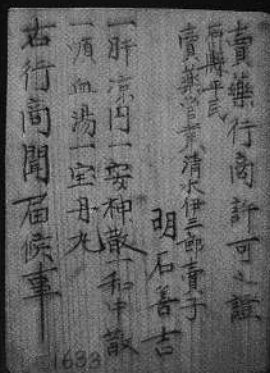 賣藥行商許可之證
同縣平民
賣藥營業清水伊三郎賣子
明石善吉
一肝凉円一安神散一和中散
一順血湯一宝丹丸
右行商聞届候事
1633